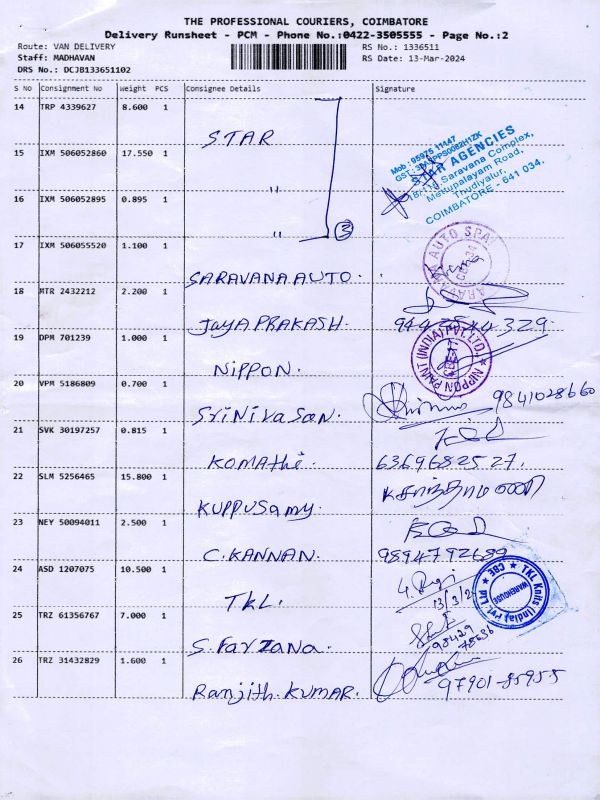 THE PROFESSIONAL COURIERS, COIMBATORE
Delivery Runsheet - PCM - Phone No.:0422-3505555 - Page No.:2
Route: VAN DELIVERY
RS No.: 1336511
Staff: MADHAVAN
RS Date: 13-Mar-2024
DRS No.: DCJB133651102
S No Consignment No Weight PCS Consignee Details Signature
14 TRP 4339627 8.600 1 STAR
15 IXM 506052860 17.550 1 "
Mob: 95975 11147
STAR AGENCIES
Saravana Complex,
Mettupalayam Road,
Thudiyalur,
COIMBATORE - 641 034.
16 IXM 506052895 0.895 1 "
3
17 IXM 506055520 1.100 1 SARAVANA AUTO.
AUTO SPA
18 MTR 2432212 2.200 1 JayA PRAKASH.
19 DPM 701239 1.000 1 NiPPON.
NIPPON PAINT (INDIA) PVT. LTD.
20 VPM 5186809 0.700 1 SriNivasan. 9841028660
21 SVK 30197257 0.815 1 KOMATHi. 6369682527.
22 SLM 5256465 15.800 1 KUPPUSamy
23 NEY 50094011 2.500 1 C.KANNAN. 9894792689
24 ASD 1207075 10.500 1 TKL.
13/3/2
TKL Knits (India) Pvt. Ltd.
WAREHOUSE
CBE
25 TRZ 61356767 7.000 1 S. Farzana.
98429
78636
26 TRZ 31432829 1.600 1 Ranjith. KUMAR. 97901-85955